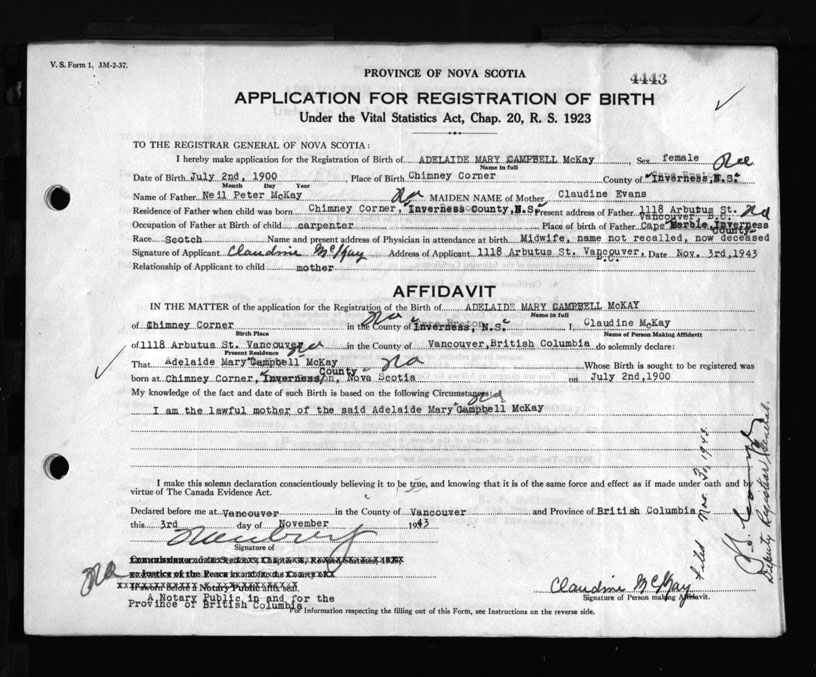 V. S. Form 1. 3M-2-37.
PROVINCE OF NOVA SCOTIA
4443
APPLICATION FOR REGISTRATION OF BIRTH
Under the Vital Statistics Act, Chap. 20, R. S. 1923
TO THE REGISTRAR GENERAL OF NOVA SCOTIA:
I hereby make application for the Registration of Birth of ADELAIDE MARY CAMPBELL McKAY, Sex female
Name in full
Date of Birth July 2nd, 1900, Place of Birth Chimney Corner County of "Inverness, N.S."
Month Day Year
Name of Father Neil Peter McKay MAIDEN NAME of Mother Claudine Evans
Residence of Father when child was born Chimney Corner, "Inverness County, N.S." Present address of Father 1118 Arbutus St.
Vancouver, B.C.
Occupation of Father at Birth of child carpenter Place of birth of Father Cape Marbie, Inverness
County"
Race Scotch Name and present address of Physician in attendance at birth Midwife, name not recalled, now deceased
Signature of Applicant Claudine McKay Address of Applicant 1118 Arbutus St. Vancouver, Date Nov. 3rd, 1943
B.C.
Relationship of Applicant to child mother
AFFIDAVIT
IN THE MATTER of the application for the Registration of the Birth of ADELAIDE MARY CAMPBELL McKAY
Name in full
of Chimney Corner in the County of "Inverness, N.S." I, Claudine McKay
Birth Place Name of Person Making Affidavit
of 1118 Arbutus St. Vancouver in the County of Vancouver, British Columbia do solemnly declare:
Present Residence
That Adelaide Mary "Campbell" McKay Whose Birth is sought to be registered was
County"
born at Chimney Corner, "Inverness, Nova Scotia on July 2nd, 1900
My knowledge of the fact and date of such Birth is based on the following Circumstances:
I am the lawful mother of the said Adelaide Mary "Campbell McKay
I make this solemn declaration conscientiously believing it to be true, and knowing that it is of the same force and effect as if made under oath and by
virtue of The Canada Evidence Act.
Declared before me at Vancouver in the County of Vancouver and Province of British Columbia
this 3rd day of November 1943
Signature of
or Justice of the Peace in and for the County
If sworn before a Notary Public affix seal.
A Notary Public in and for the
Province of British Columbia
Claudine McKay
Signature of Person making Affidavit.
For Information respecting the filling out of this Form, see Instructions on the reverse side.
Filed Nov. 1943.
Deputy Registrar General.